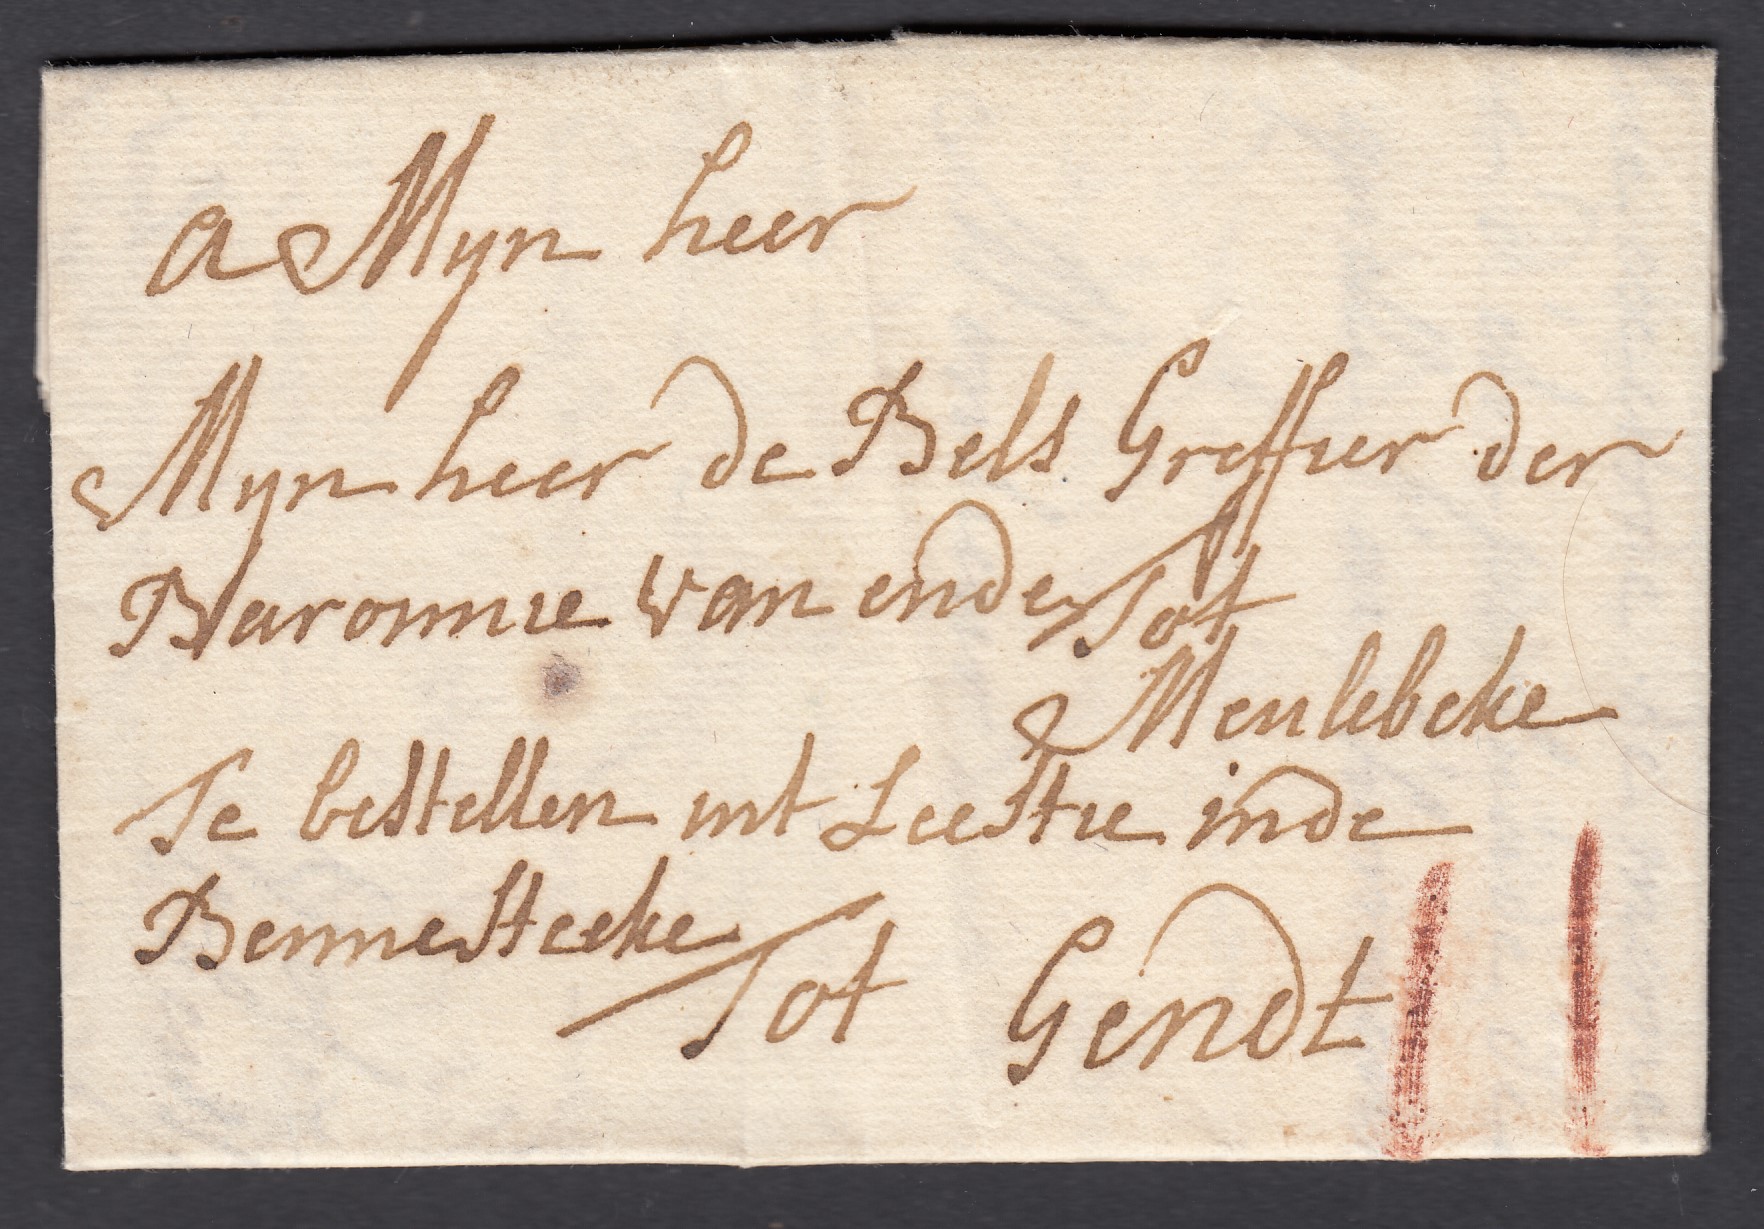 a Mijn heer
Mijn heer de Bels Greffier der
Baronnie van ende Tot
Meulebeke
Te bestellen int Leestie inde
Bennesteeke
Tot Gendt